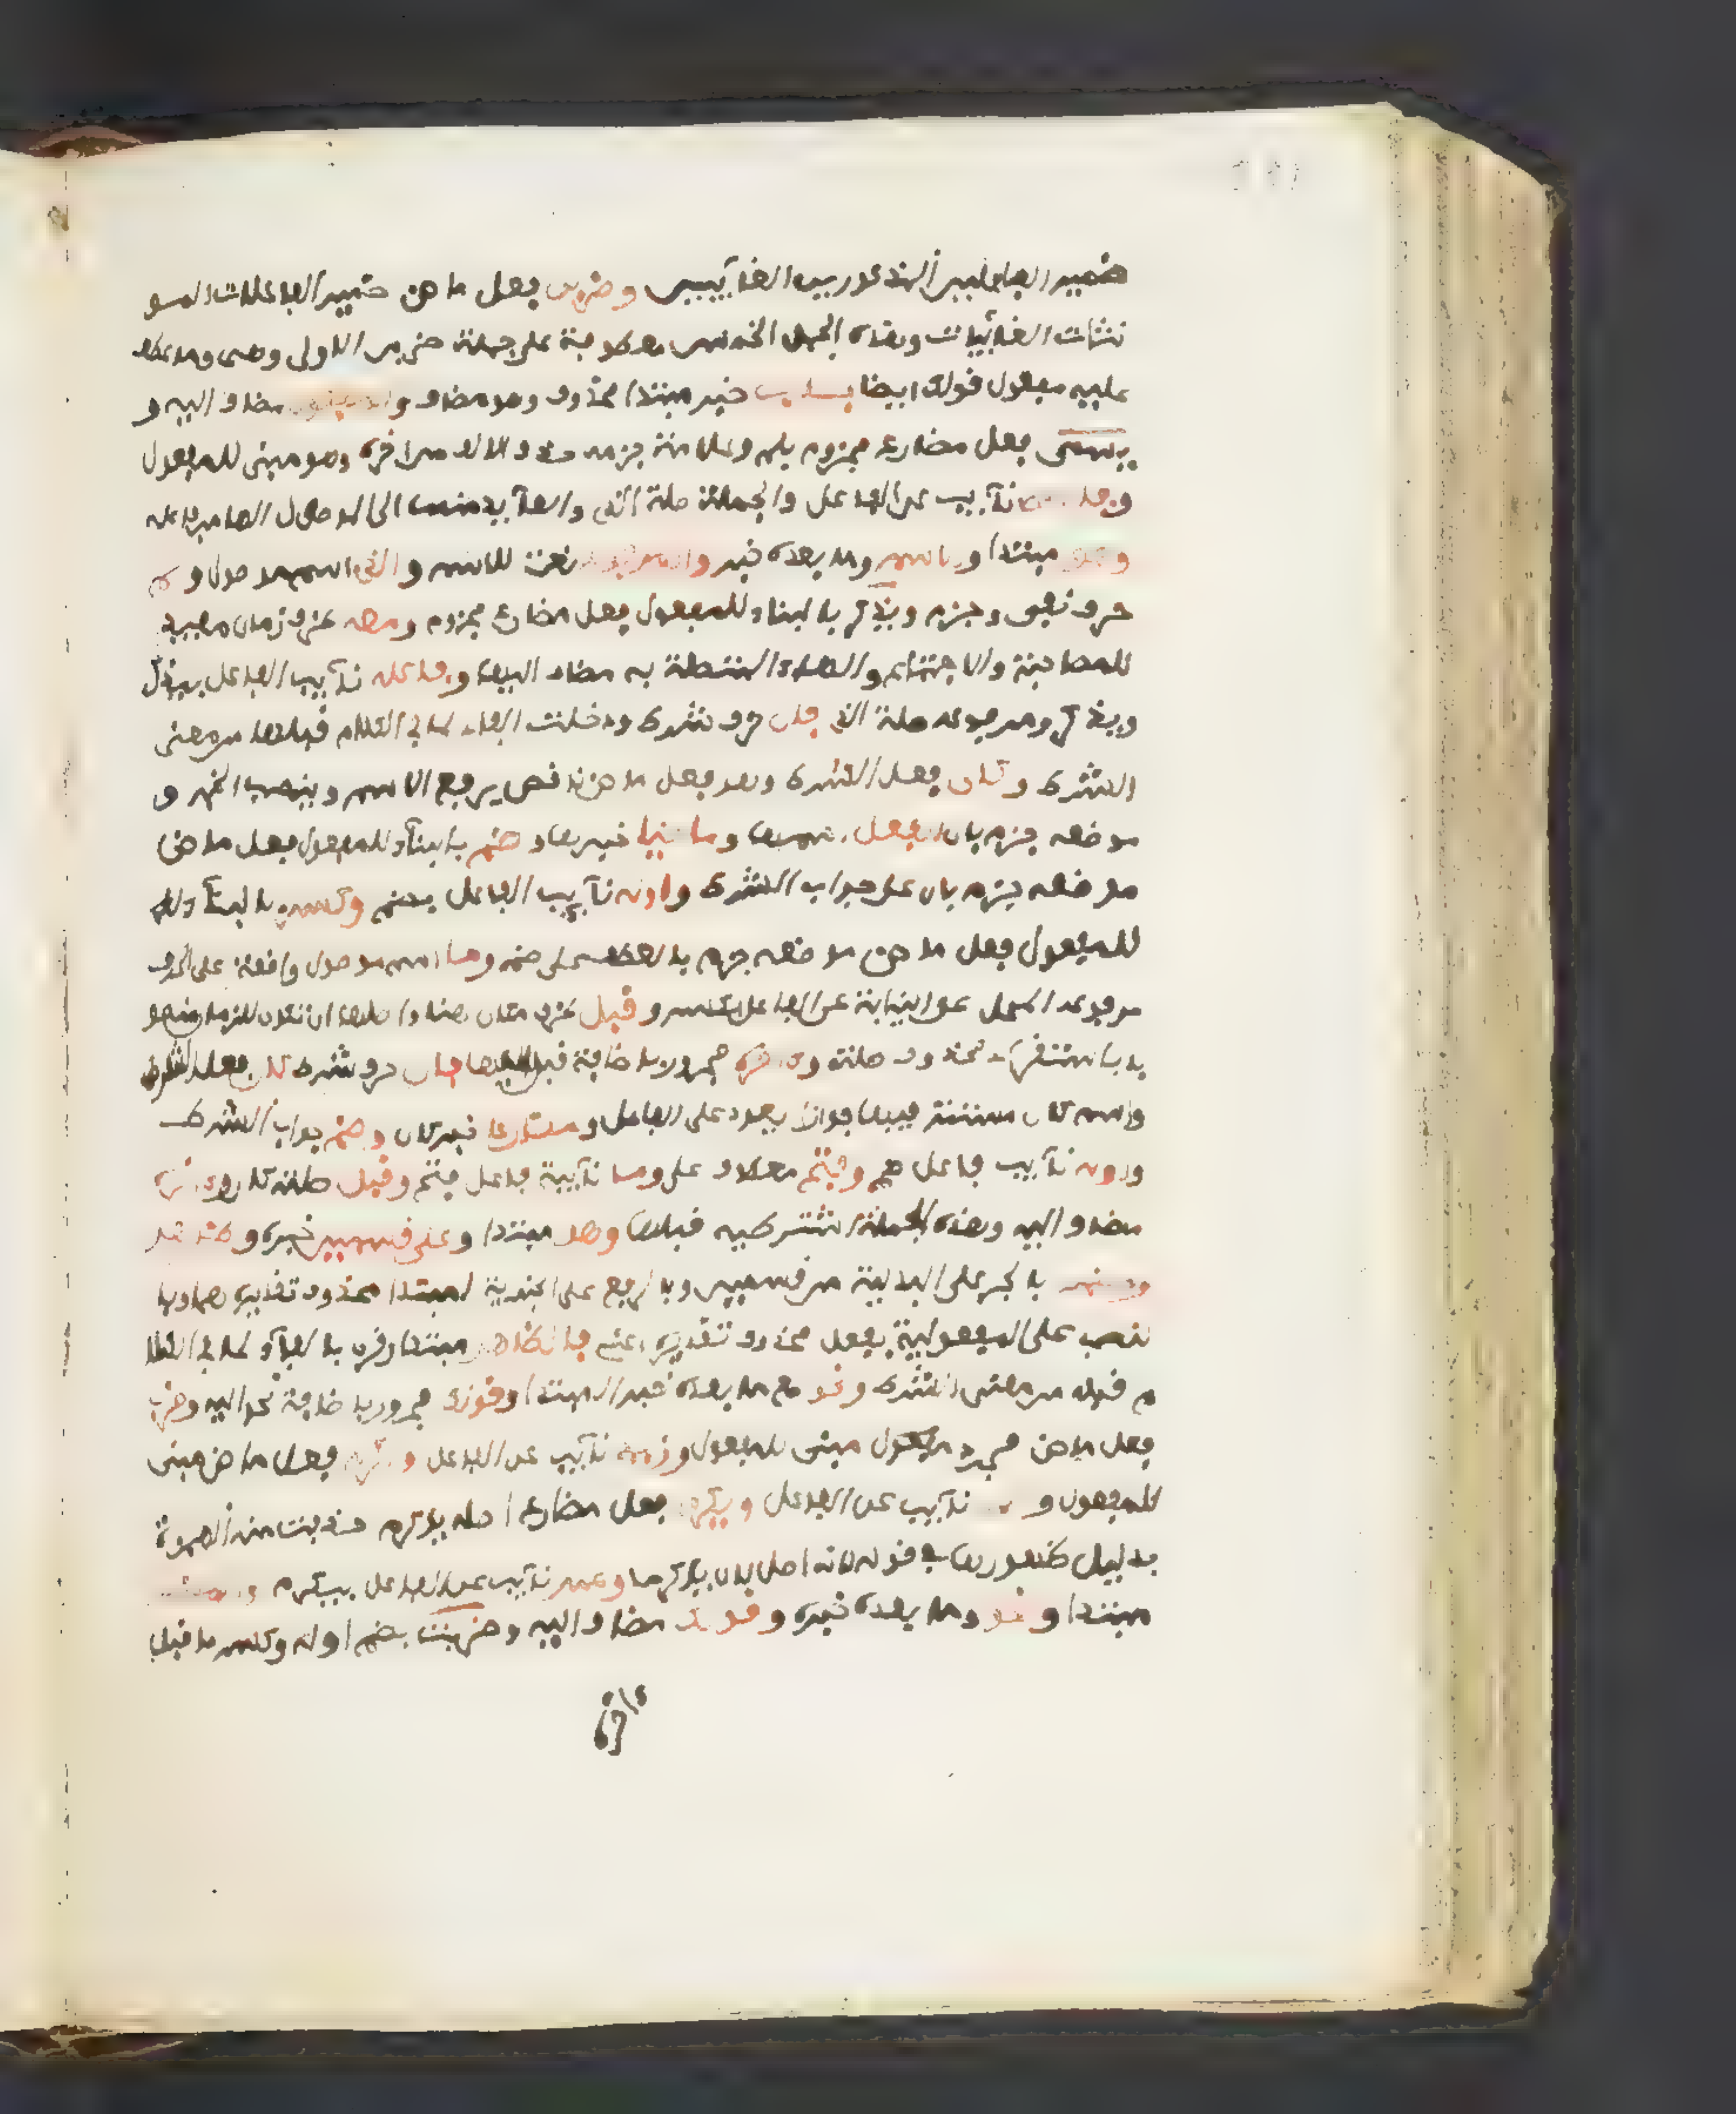 ضمير الفاعلين المذكورين الغآئبين وضربن فعل ماض ضمير الفاعلات المو
نثات الغآئبات وهذه الجمل الخمس معطوفة على جملة ضرب الاولى وهى وما عطف
عليه مفعول قولك ايضا باب خبر مبتدا محذوف وهو مضاف والمفعول مضاف اليه و
يسمى فعل مضارع مجزوم بلم وعلامة جزمه حذف الالف من اخره وهو مبنى للمفعول
وفاعله نآئب عن الفاعل والجملة صلة الذى والعآئد منها الى الموصول الها من فاعله
وهو مبتدا والاسم وما بعده خبر والمرفوع نعت للاسم والذى اسم موصول ولم
حرف نفى وجزم ويذكر بالبناء للمفعول فعل مضارع مجزوم ومعه ظرف زمان مفيد
للمصاحبة والاجتماع والهاء المتصلة به مضاف اليها وفاعله نآئب الفاعل بيذكر
ويذكر ومرفوعه صلة الذى فان حرف شرط ودخلت الفاء لما فى الكلام قبلها من معنى
الشرط وكان فعل الشرط وهو فعل ماض ناقص يرفع الاسم وينصب الخبر و
موضعه جزم بان الفعل اسمها وماضيا خبرها وضم بالبنآء للمفعول فعل ماض
موضعه جزم بان على جواب الشرط واوله نآئب الفاعل بضم وكسر بالبنآء
للمفعول فعل ماض موضعه جزم بالعطف على ضم وما اسم موصول واقعة على الحرف
مرفوعة المحل على النيابة عن الفاعل بكسر وقبل ظرف مكان هنا واصلها ان تكون للزمان منصو
بة باستقر محذوف صلة وءاخره مجرور باضافة قبل اليها وان حرف شرط كان فعل الشرط
واسم كان مستتر فيها جوازا يعود على الفاعل ومضارعا خبر كان وضم جواب الشرط
واوله نآئب فاعل ضم وفتح معطوف على وما نآئبة فاعل فتح وقبل صلة ما وءاخره
مضاف اليه وهذه الجملة الشرطية قبلها وهو مبتدا وعلى قسمين خبره وظاهر
ومضمر بالجر على البدلية من قسمين وبالرفع على الخبرية لمبتدا محذوف تقديره هما وبا
لنصب على المفعولية بفعل محذوف تقديره اعنى فالظاهر مبتدا وقرن بالفآء لما فى الكلا
م قبله من معنى الشرط ونحو مع ما بعده خبر المبتدا وقولك مجرور باضافة نحو اليه وضرب
فعل ماض مجرد مبنى للمفعول وزيد نآئب عن الفاعل واكرم فعل ماض مبنى
للمفعول و نآئب عن الفاعل ويكرم فعل مضارع اصله يؤكرم حذفت منه الهمزة
بدليل ظهورها فى قوله لانه اهل لان يؤكرما وعمر نآئب عن الفاعل بيكرم والمضمر
مبتدا ونحو وما بعده خبره وقولك مضاف اليه وضربت بضم اوله وكسر ما قبل
ءاخره